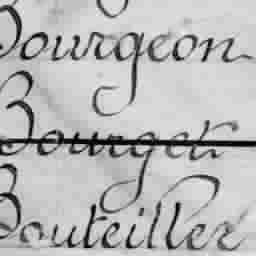 Bourgeon
Bourget
Bouteiller